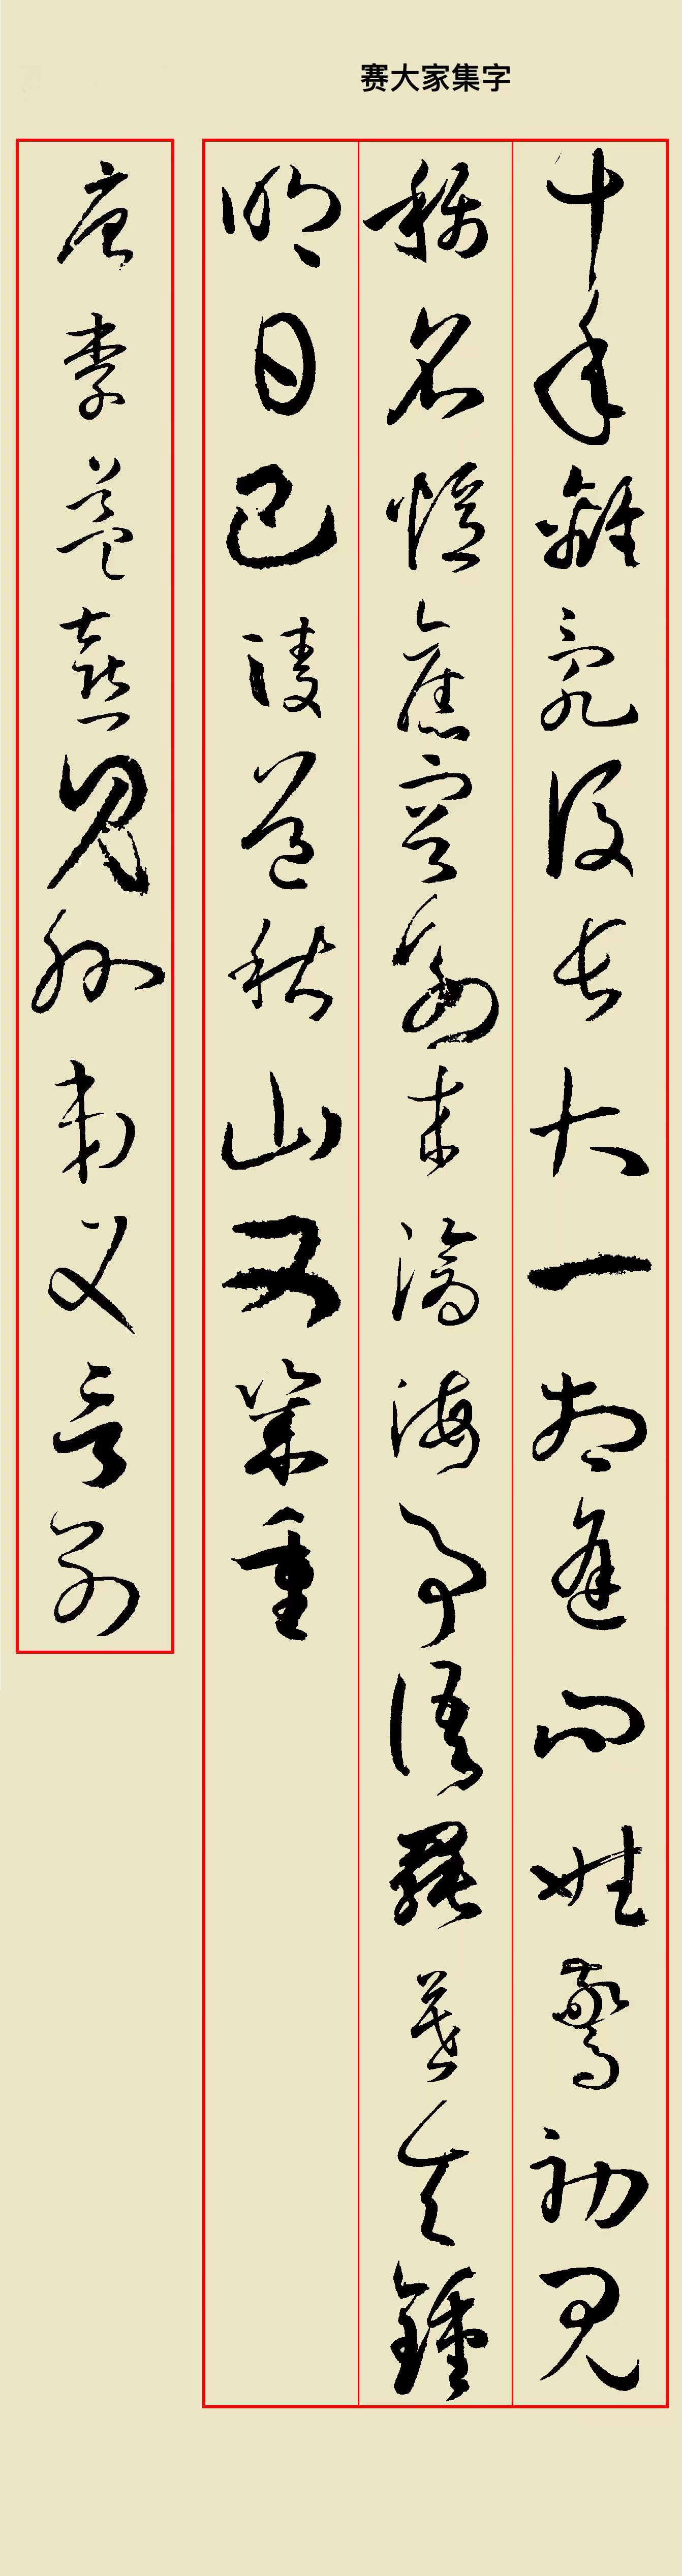 赛大家集字
十年離亂後長大一相逢問姓驚初見
稱名憶舊容別來滄海事語罷暮天鍾
明日巴陵道秋山又幾重
唐李益喜見外弟又言別